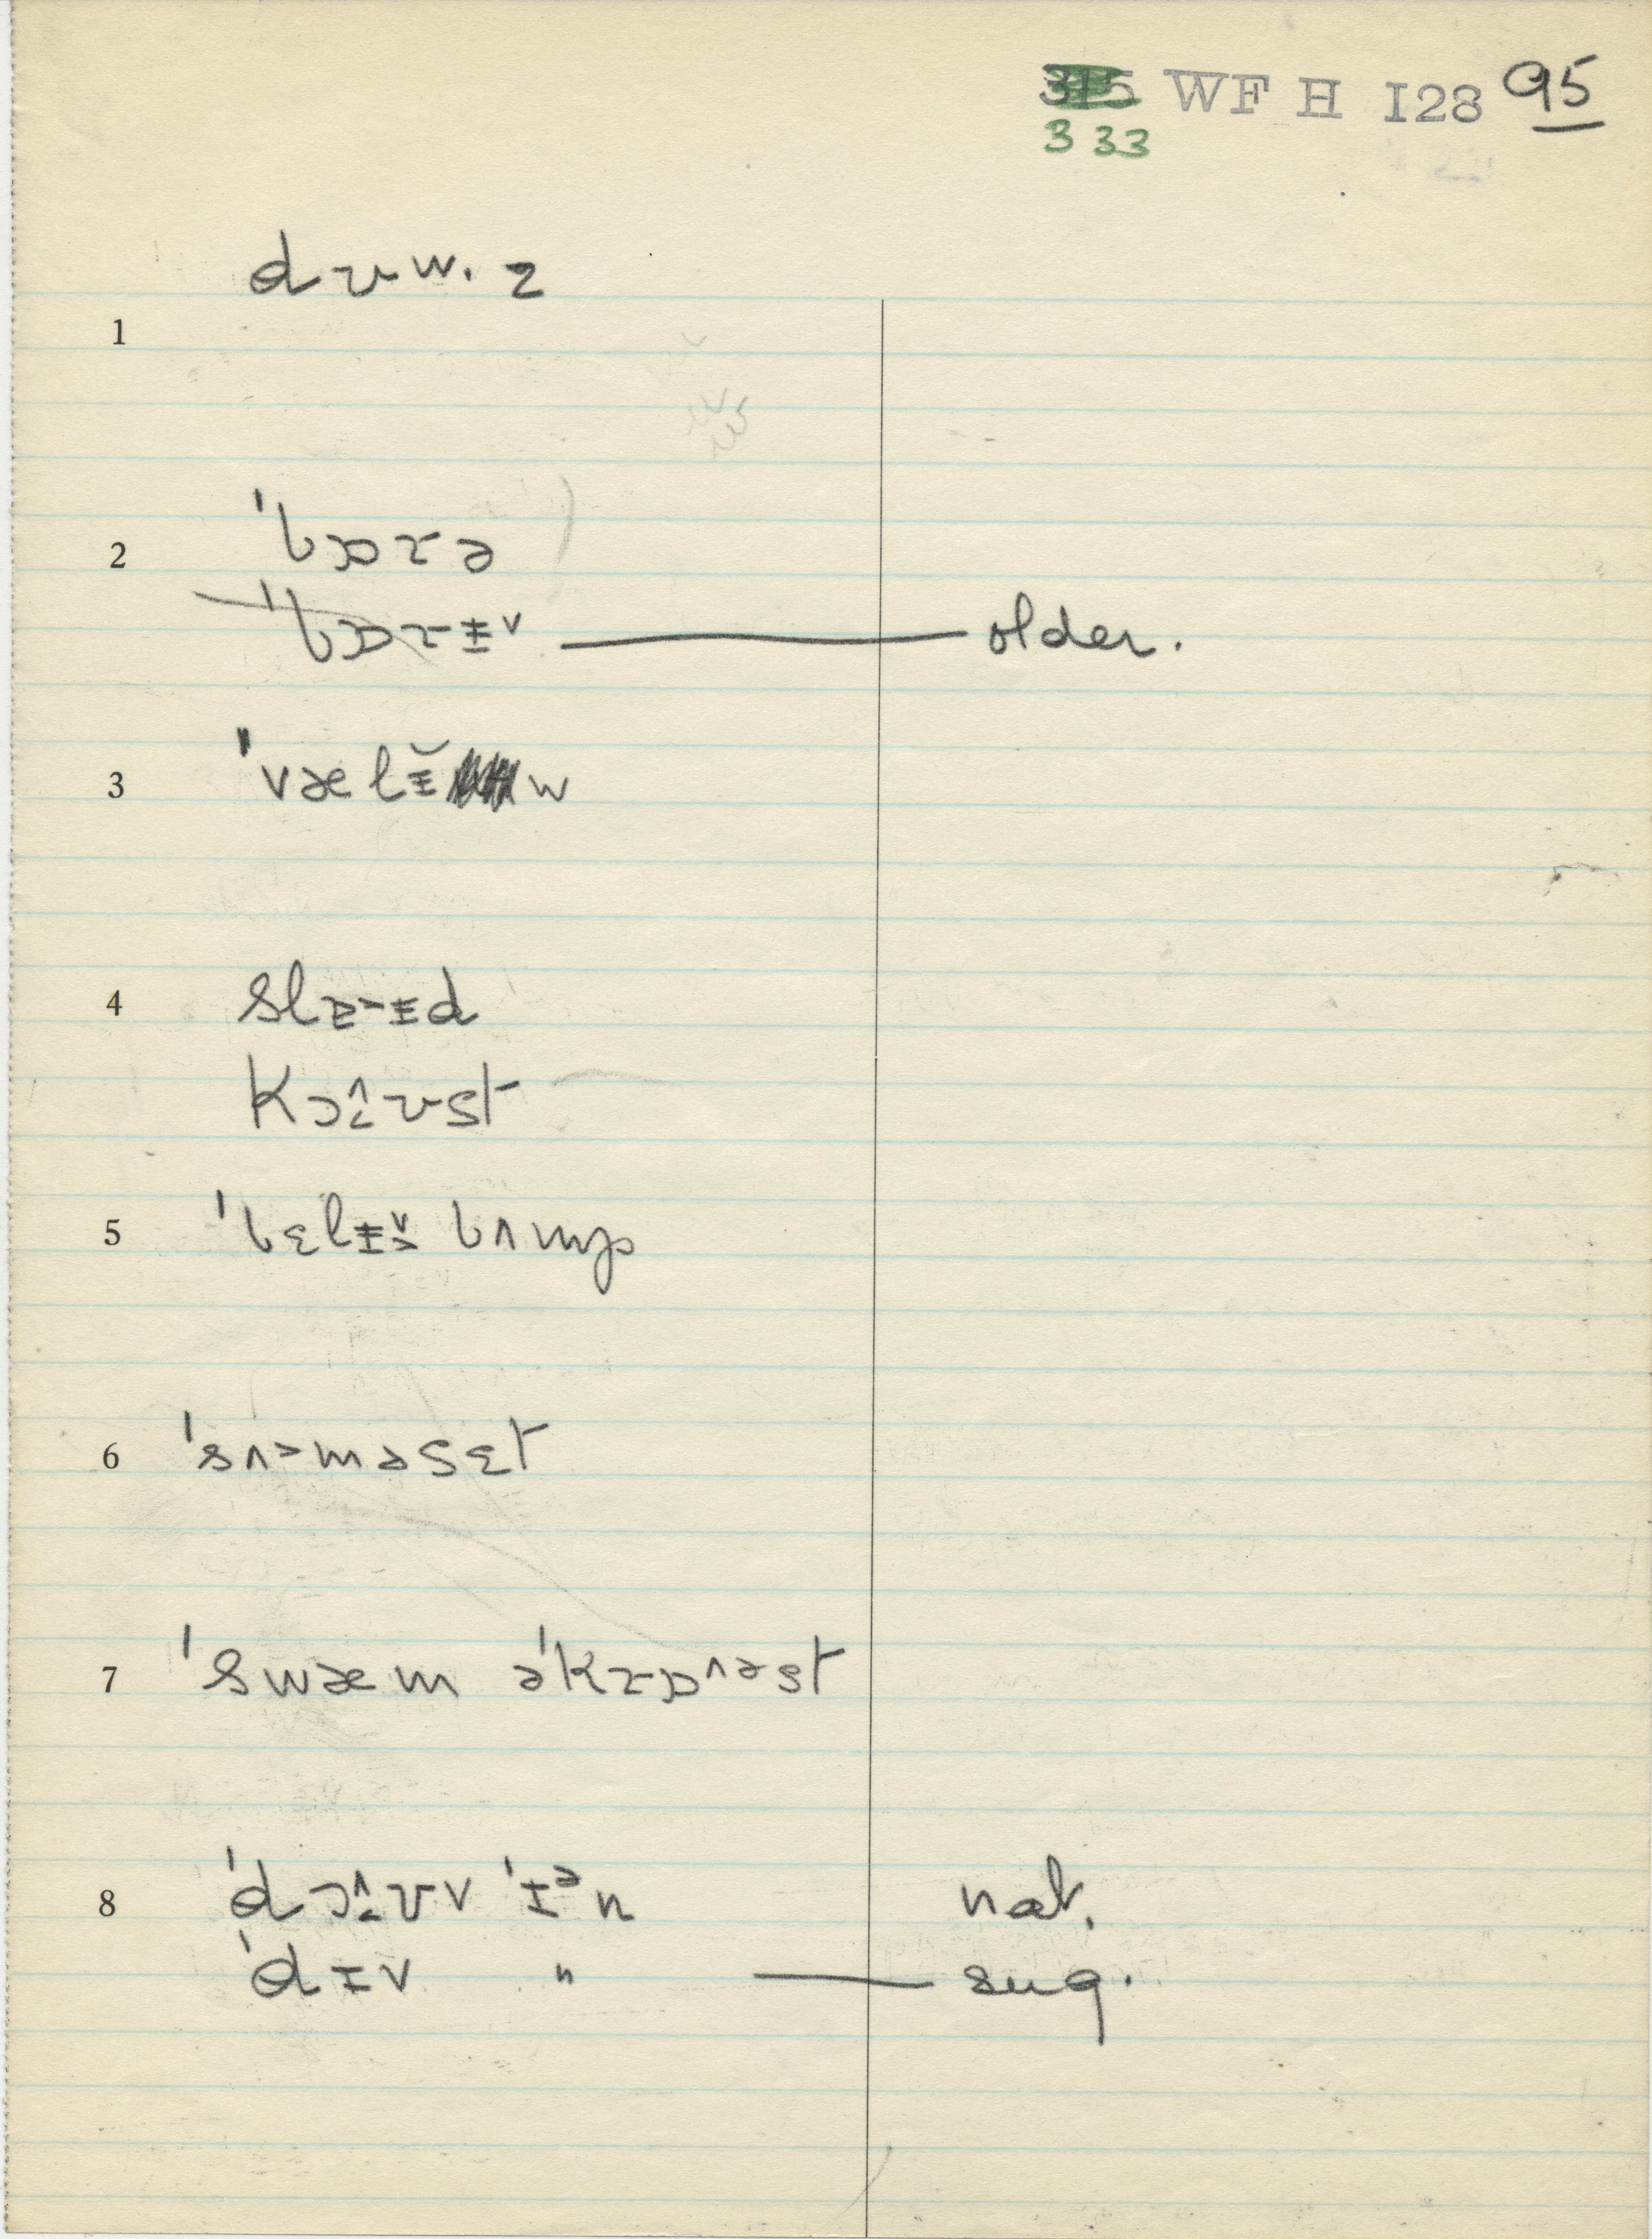 315 WF H I28 95
333
dʊw. z
1
2 ˈbɒɾə
ˈbɒɾɨˇ older.
3 ˈvælɨ̆w
4 slɛ˃ɨd
kɔ^ʊst
5 ˈbɛlɨˇ bʌmp
6 ˈsʌ˃məsɛt
7 ˈswæm əˈkɾɒ^əst
8 ˈdɔ^ʊv ˈɪᵊn nat.
ˈdɪv " sug.